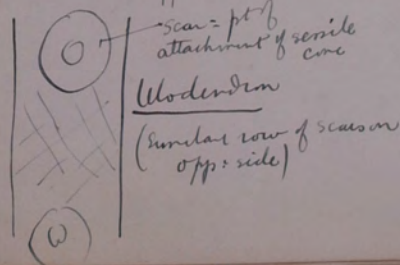 scar = pt of
attachment of sessile
cone
Ulodendron
(Similar row of scars on
opp: side)